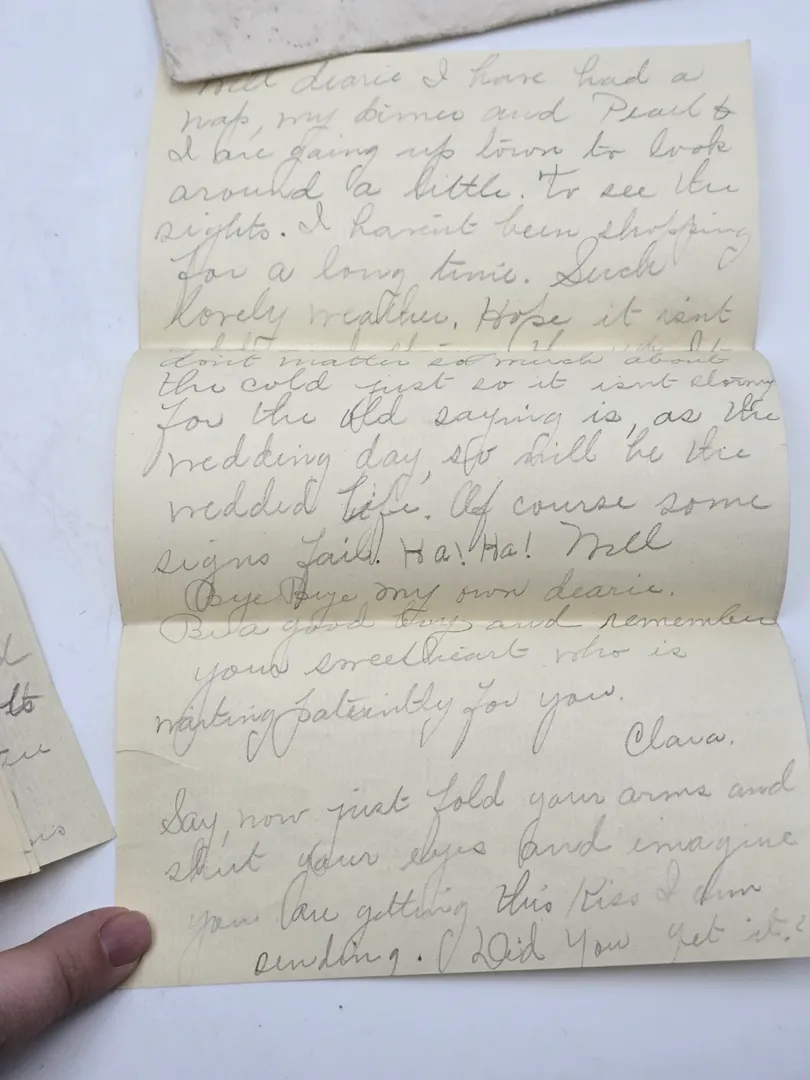 Well dearie I have had a
nap, my dinner and Pearl &
I are going up town to look
around a little. To see the
sights. I havent been shopping
for a long time. Such
lovely weather. Hope it isnt
dont matter so much about
the cold just so it isnt stormy
for the old saying is, as the
wedding day, so will be the
wedded life. Of course some
signs fail. Ha! Ha! Well
Bye Bye my own dearie.
Be a good boy and remember
your sweetheart who is
waiting pateintly for you.
Clara.
Say, now just fold your arms and
shut your eyes and imagine
you are getting this kiss I am
sending. Did you get it?